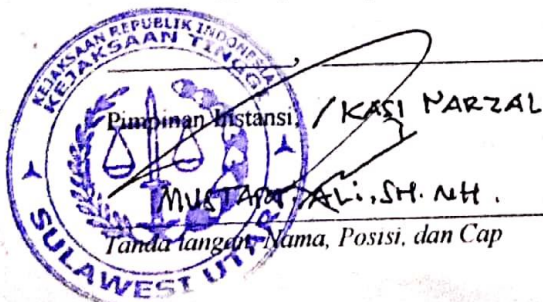 KEJAKSAAN REPUBLIK INDONESIA
KEJAKSAAN TINGGI
SULAWESI UTARA
Pimpinan Instansi, / KASI
MUSTAPA ALI, SH. MH.
Tanda tangan, Nama, Posisi, dan Cap